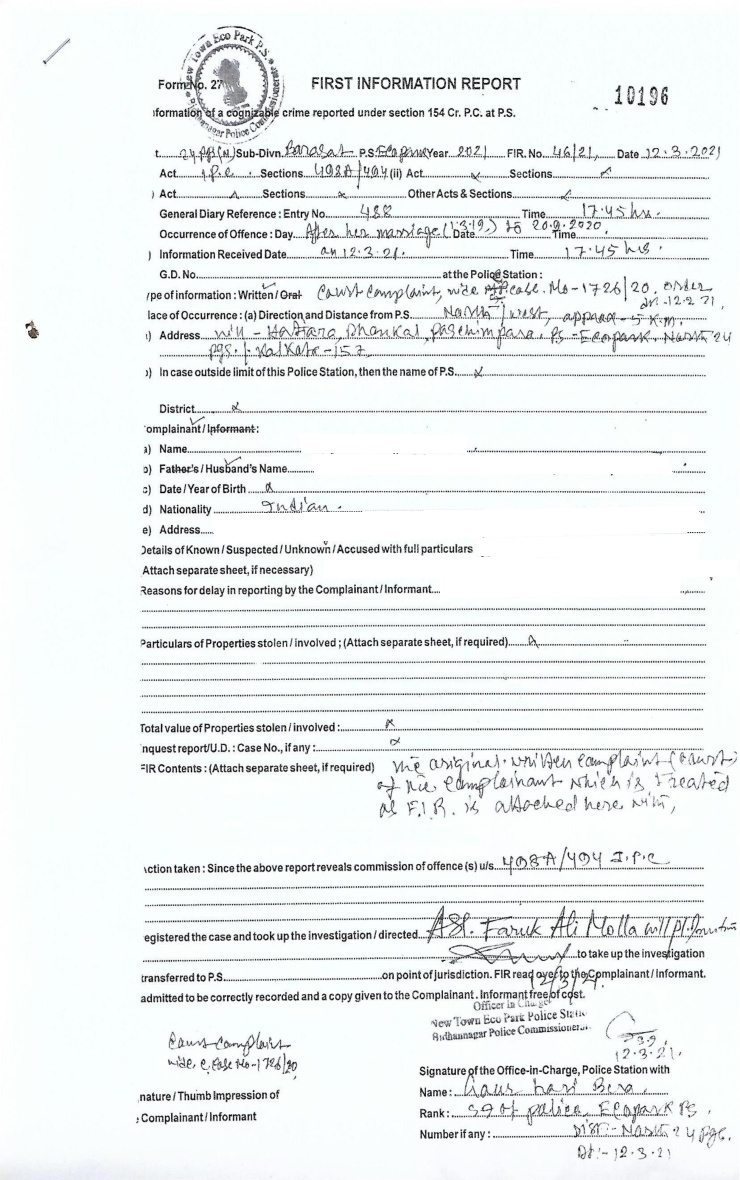 New Town Eco Park P.S.
Bidhannagar Police Commissionerate
Form No. 27
FIRST INFORMATION REPORT
10196
formation of a cognizable crime reported under section 154 Cr. P.C. at P.S.
t. 24 pgs (N) Sub-Divn. Barasat P.S. Ecopark Year 2021 FIR. No. 46/21, Date 12.3.2021
Act I.P.C. Sections 498A/494 (ii) Act x Sections
) Act Sections Other Acts & Sections
General Diary Reference : Entry No. 488 Time 17.45 hrs.
Occurrence of Offence : Day. After her marriage (1.3.19) Date to 20.9.2020 Time
) Information Received Date on 12.3.21. Time 17.45 hrs.
G.D. No. at the Police Station :
ype of information : Written / Oral Court Complaint, vide case. No-1726/20. order
dt. 12.2.21,
lace of Occurrence : (a) Direction and Distance from P.S. North/west, approx-5 K.M.
) Address Vill - Hatiara, Dhankal, paschimpara. PS - Ecopark. North 24
pgs. Kolkata-157
) In case outside limit of this Police Station, then the name of P.S. x
District x
omplainant / Informant :
a) Name
) Father's / Husband's Name
c) Date / Year of Birth x
d) Nationality Indian.
e) Address
Details of Known / Suspected / Unknown / Accused with full particulars
Attach separate sheet, if necessary)
Reasons for delay in reporting by the Complainant / Informant
Particulars of Properties stolen / involved ; (Attach separate sheet, if required) x
Total value of Properties stolen / involved : x
nquest report/U.D. : Case No., if any : x
FIR Contents : (Attach separate sheet, if required) The original written complaint (Court)
of the Complainant which is treated
as F.I.R. is attached here with,
ction taken : Since the above report reveals commission of offence (s) u/s. 498A/494 I.P.C
egistered the case and took up the investigation / directed ASI. Faruk Ali Molla will pl.
to take up the investigation
transferred to P.S. on point of jurisdiction. FIR read over to the Complainant / Informant.
12/3/21
admitted to be correctly recorded and a copy given to the Complainant. Informant free of cost.
Officer in Charge
New Town Eco Park Police Statio
Bidhannagar Police Commissioner
12.3.21.
Court Complaint
vide, C. Case No-1726/20
Signature of the Office-in-Charge, Police Station with
nature / Thumb Impression of
Complainant / Informant
Name : Gaur hari Bera.
Rank : SI of police, Ecopark PS.
Number if any : Dist:- North 24 pgs.
Dt:- 12.3.21